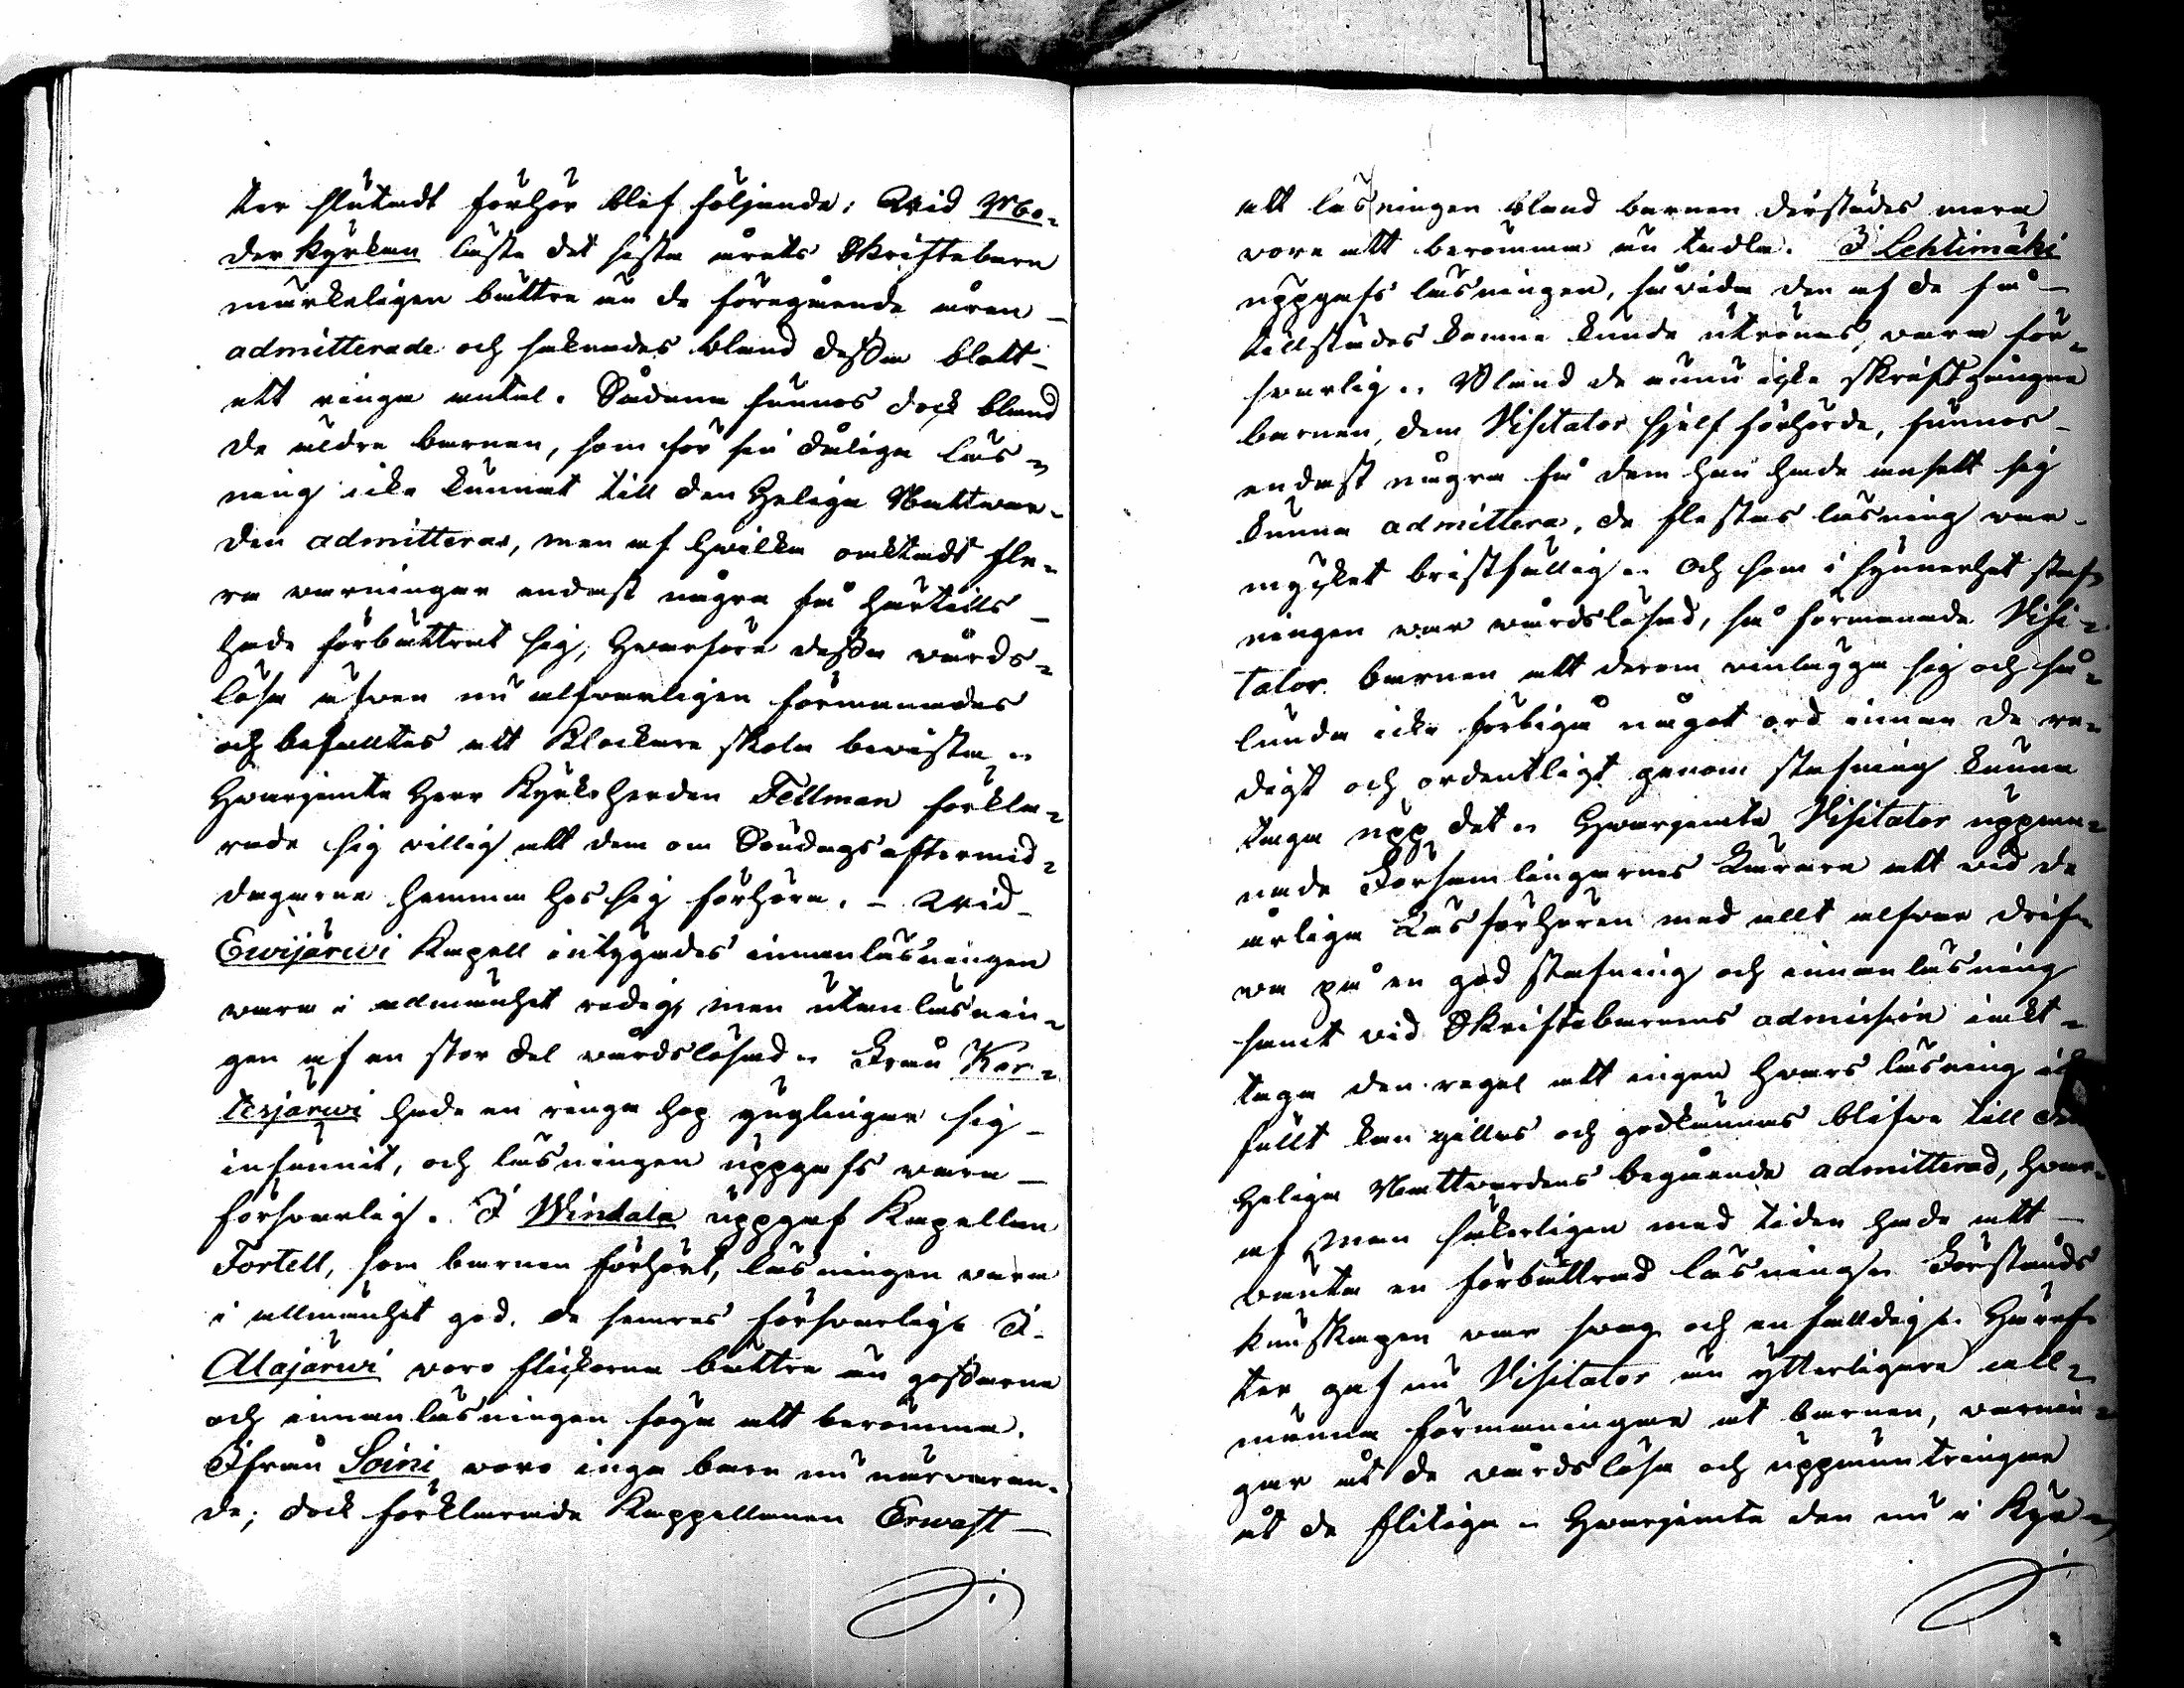 ter slutadt förhör blef följande: Wid Mo-
derkyrkan läste det sista årets Skriftebarn
märkeligen bättre än de föregående åren
admitterade och saknades bland dessa blott
ett ringa antal. Sådana funnos dock bland
de äldre barnen, som för sin dåliga läs-
ning icke kunnat till den Heliga Nattwar-
den admitteras, men af hwilka oaktadt fle-
ra warningar endast några få härtills
hade förbättrat sig, hwarföre dessa wårds-
lösa äfwen nu alfwarligen förmanades
och befalltes att Klockare skola bewista,
Hwarjemte Herr Kyrkoherden Fellman förkla-
rade sig willig att dem om Söndags aftermid-
dagarna hemma hos sig förhöra. - Wid
Ewijärwi Kapell intygades innanläsningen
wara i allmänhet redig, men utanläsnin-
gen af en stor del wårdslösad. Från Kor-
tesjärwi hade en ringa hop ynglingar sig
infunnit, och läsningen uppgafs wara
förswarlig. I Windala uppgaf Kapellan
Tortell, som barnen förhört, läsningen wara
i allmänhet god, de semres förswarlig. I
Alajärwi woro flickorna bättre än gossarne
och innanläsningen föga att berömma.
Ifrån Soini woro inga barn nu närwaran-
de; dock förklarade Kappellanen Erwast
att läsningen bland barnen derstädes mera
wore att berömma än tadla. I Lehtimäki
uppgafs läsningen, såwida den af de få
tillstädes komne kunde utrönas, wara för-
swarlig. Bland de ännu icke skriftgångna
barnen, dem Visitator sjelf förhörde, funnos
endast några få dem han hade ansett sig
kunna admittera, de flestas läsning war
mycket bristfällig. Och som i synnerhet staf-
ningen war wårdslösad, så förmanade Visi-
tator barnen att derom winlägga sig och så-
lunda icke förbigå något ord innan de re-
digt och ordentligt genom stafning kunna
taga upp det. Hwarjemte Visitator uppma-
nade Församlingarnes Lärare att wid de
årliga Läsförhören med allt alfwar drif-
wa på en god stafning och innanläsning
samt wid Skriftebarnens admission iakt-
taga den regel att ingen hwars läsning
fullt kan gillas och godkännas blifwa till
Heliga Nattwardens begående admitterad, hwar-
af man säkerligen med tiden hade att
wänta en förbättrad läsning. Förstånds
kunskapen war swag och enfalldig. Häref-
ter gaf nu Visitator än ytterligare all-
männa förmaningar åt barnen, warnin-
gar åt de wårdslösa och uppmuntringar
åt de flitiga. Hwarjemte den nu i Kyr-